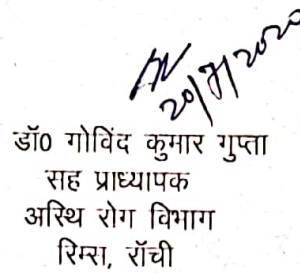 20/7/2020
डॉ0 गोविंद कुमार गुप्ता
सह प्राध्यापक
अस्थि रोग विभाग
रिम्स, रॉची